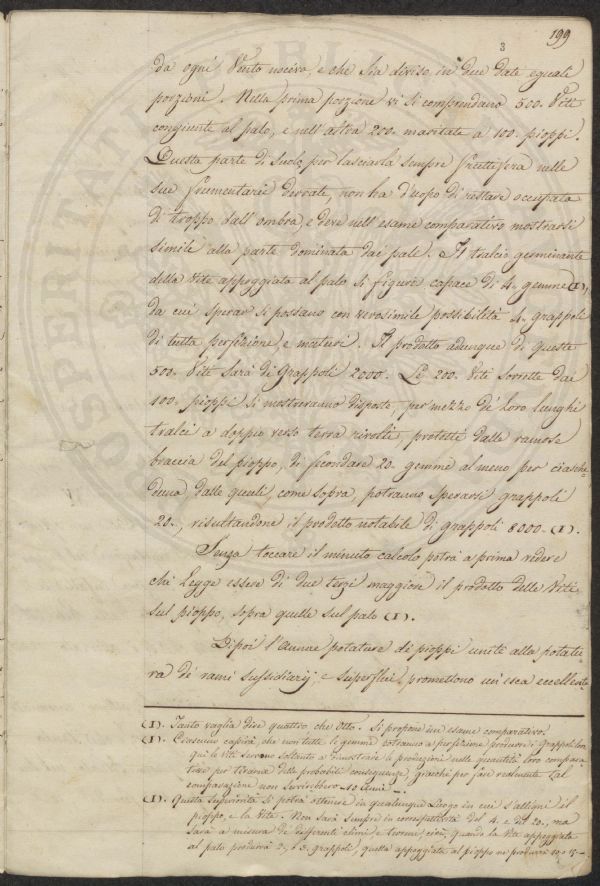 199
3
da ogni Vento nocivo, e che sia diviso in due date eguali
porzioni. Nella prima porzione vi si comprendano 500. Viti
congiunte al palo, e nell'altra 200. maritate a 100. pioppi.
Questa parte di suolo, per lasciarla sempre fruttifera nelle
sue frumentarie derrate, non ha d'uopo di restare occupata
di troppo dall'ombra, e deve nell'esame comparativo mostrarsi
simile alla parte dominata dai pali. Il tralcio germinante
della Vite appoggiata al palo si figuri capace di 4. gemme (I),
da cui sperar si possano con verosimile possibilità 4. grappoli
di tutta perfezione, e maturi. Il prodotto adunque di queste
500. Viti sarà di Grappoli 2000. Le 200. Viti sorrette dai
100. pioppi si mostreranno disposte, per mezzo de' loro lunghi
tralci a doppio verso terra rivolti, protetti dalle ramose
braccia del pioppo, di fecondare 20. gemme al meno per ciasche
duna dalle quali, come sopra, potranno sperarsi grappoli
20., risultandone il prodotto notabile di grappoli 8000. (I).
Senza toccare il minuto calcolo potrà a prima vedere
chi Legge essere di due terzi maggiore il prodotto delle Viti
sul pioppo, sopra quelle sul palo (I).
Dipoi l'annue potature di pioppi unite alla potatu
ra de' rami sussidiarj, e superflui, promettono un'esca eccellente
(I). Tanto vaglia dire quattro che Otto. Si propone un esame comparativo.
(I). Ciascuno capirà, che non tutte le gemme potranno a perfezione produrre i Grappoli loro
qui le Viti servono soltanto a dimostrare la produzione nelle quantità loro compara
tive per tirarne delle probabili conseguenze, giacchè per fare realmente tal
comparazione non servirebbero 10 Anni.
(I). Questa superiorità si potrà ottenere in qualunque Luogo in cui s'alligni il
pioppo, e la Vite. Non sarà sempre in corrispettività del 4. e del 20., ma
sarà a misura de' differenti climi, e terreni, cioè, quando la Vite appoggiata
al palo produrrà 2. o 3. grappoli, quella appoggiata al pioppo ne produrrà 10, o 15